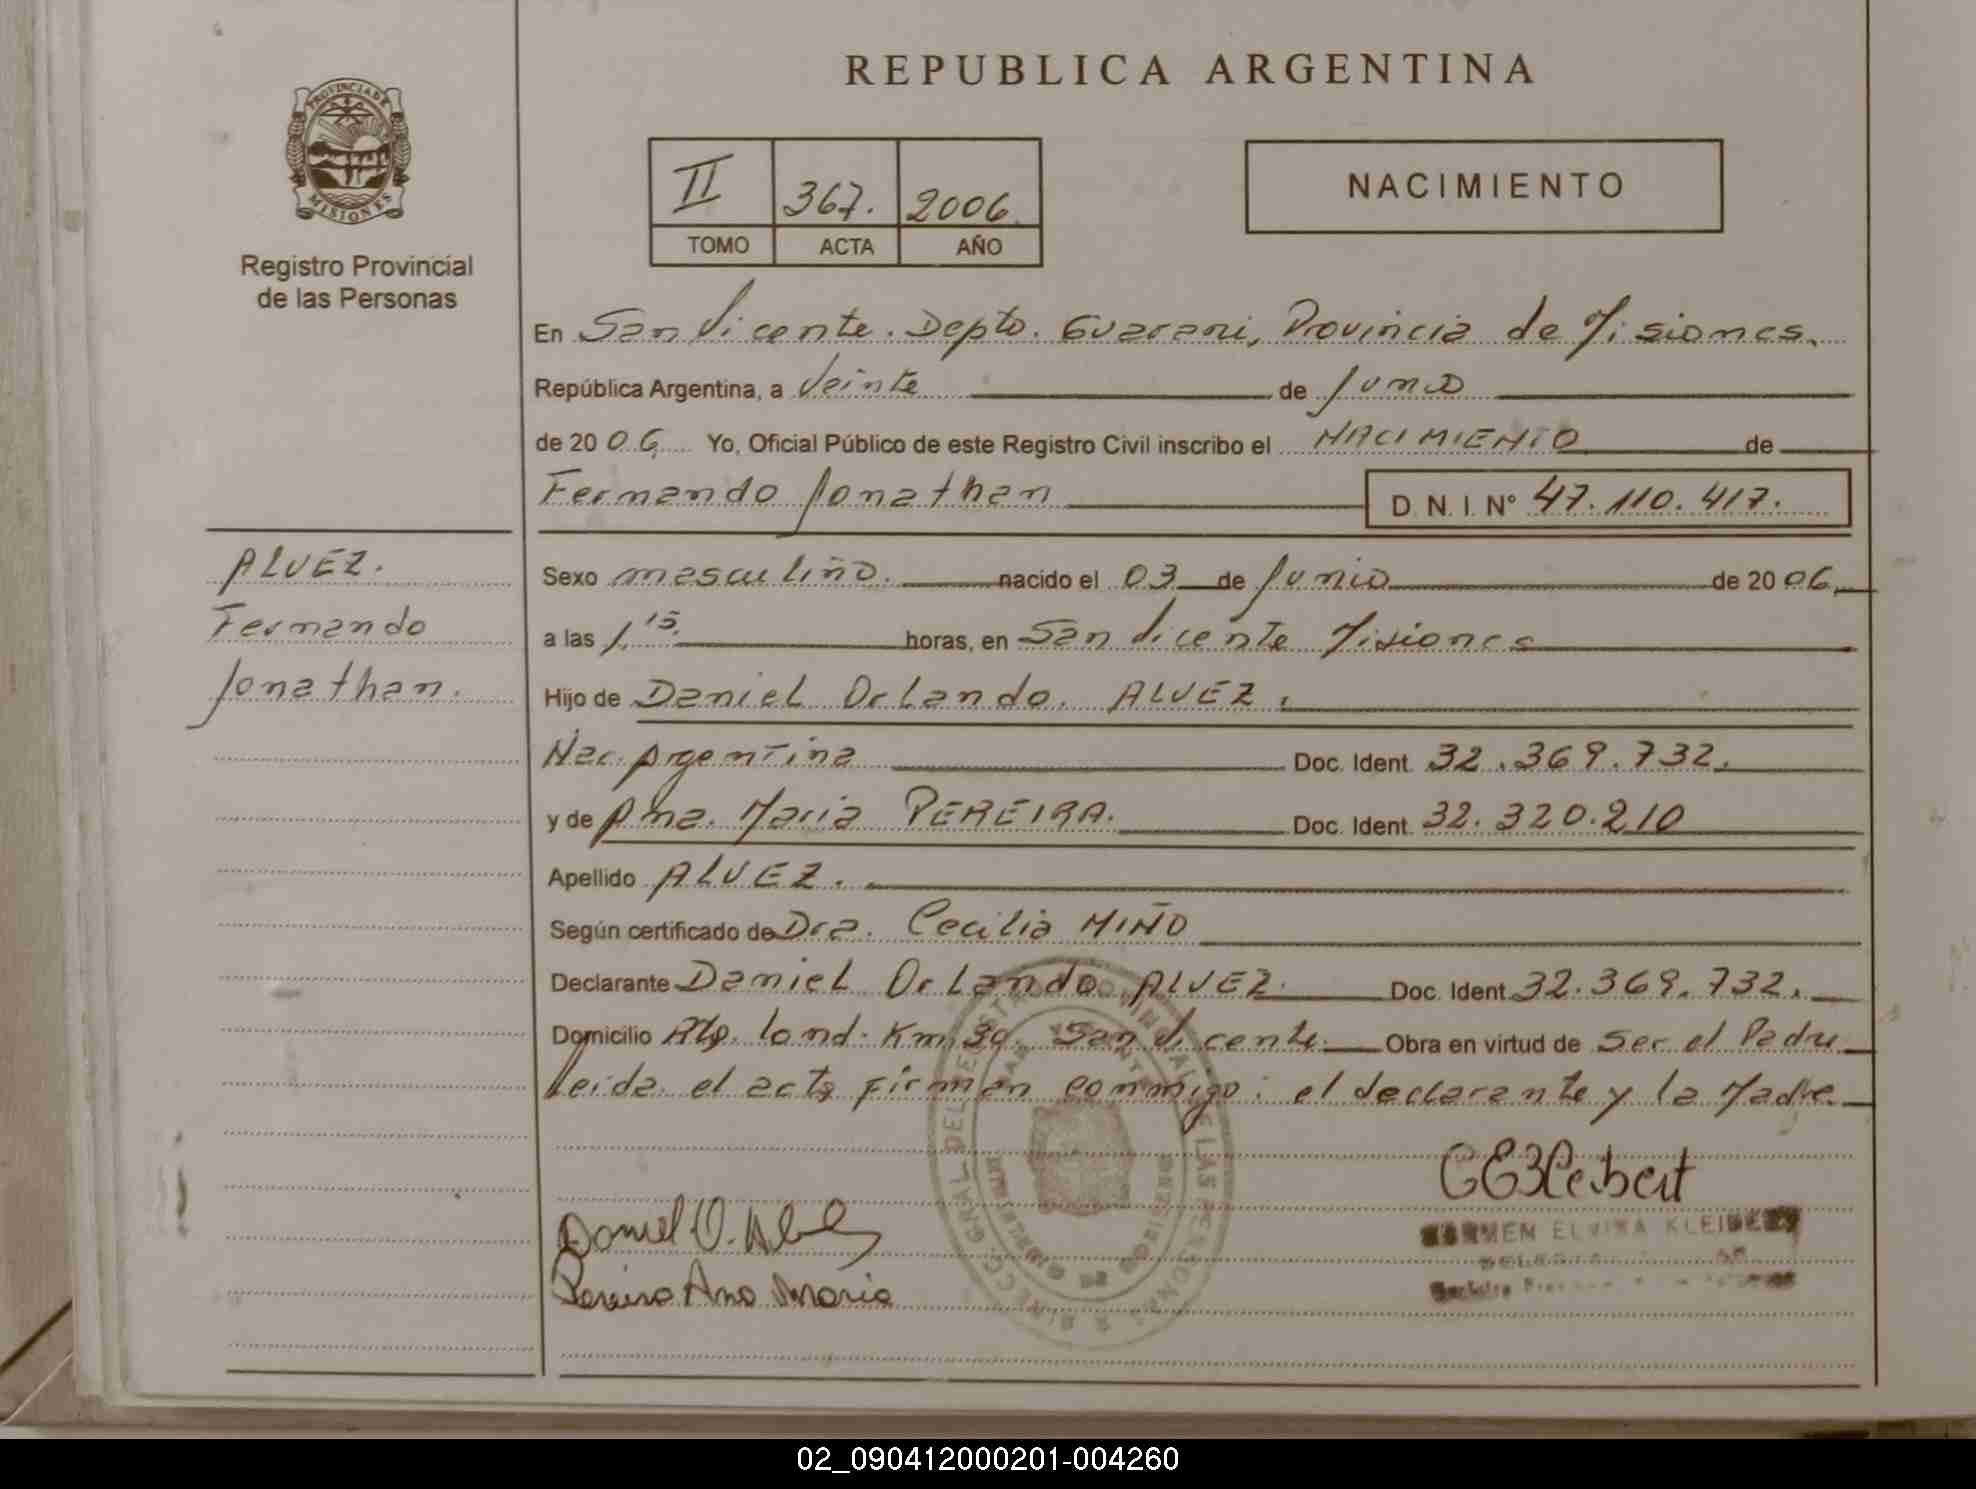 REPUBLICA ARGENTINA
PROVINCIA DE
MISIONES
Registro Provincial
de las Personas
II 367. 2006
TOMO ACTA AÑO
NACIMIENTO
En San Vicente. Depto. Guarani, Provincia de Misiones.
República Argentina, a Veinte de Junio
de 2006 Yo, Oficial Público de este Registro Civil inscribo el NACIMIENTO de
Fernando Jonathan D. N. I. N° 47.110.417.
ALVEZ.
Fernando
Jonathan.
Sexo masculino. nacido el 03 de Junio de 2006
a las 1.15. horas, en San Vicente Misiones
Hijo de Daniel Orlando. ALVEZ.
Nac. Argentina Doc. Ident. 32.369.732.
y de Ana. Maria PEREIRA. Doc. Ident. 32.320.210
Apellido ALVEZ.
Según certificado de Dra. Cecilia MIÑO
Declarante Daniel Orlando ALVEZ. Doc. Ident. 32.369.732.
Domicilio Km San Vicente. Obra en virtud de Ser el Padre
Leida el acta firman conmigo: el declarante y la Madre.
Daniel O. Alvez
Pereira Ana Maria
CEKleibert
CARMEN ELVIRA KLEIBERT
02_090412000201-004260